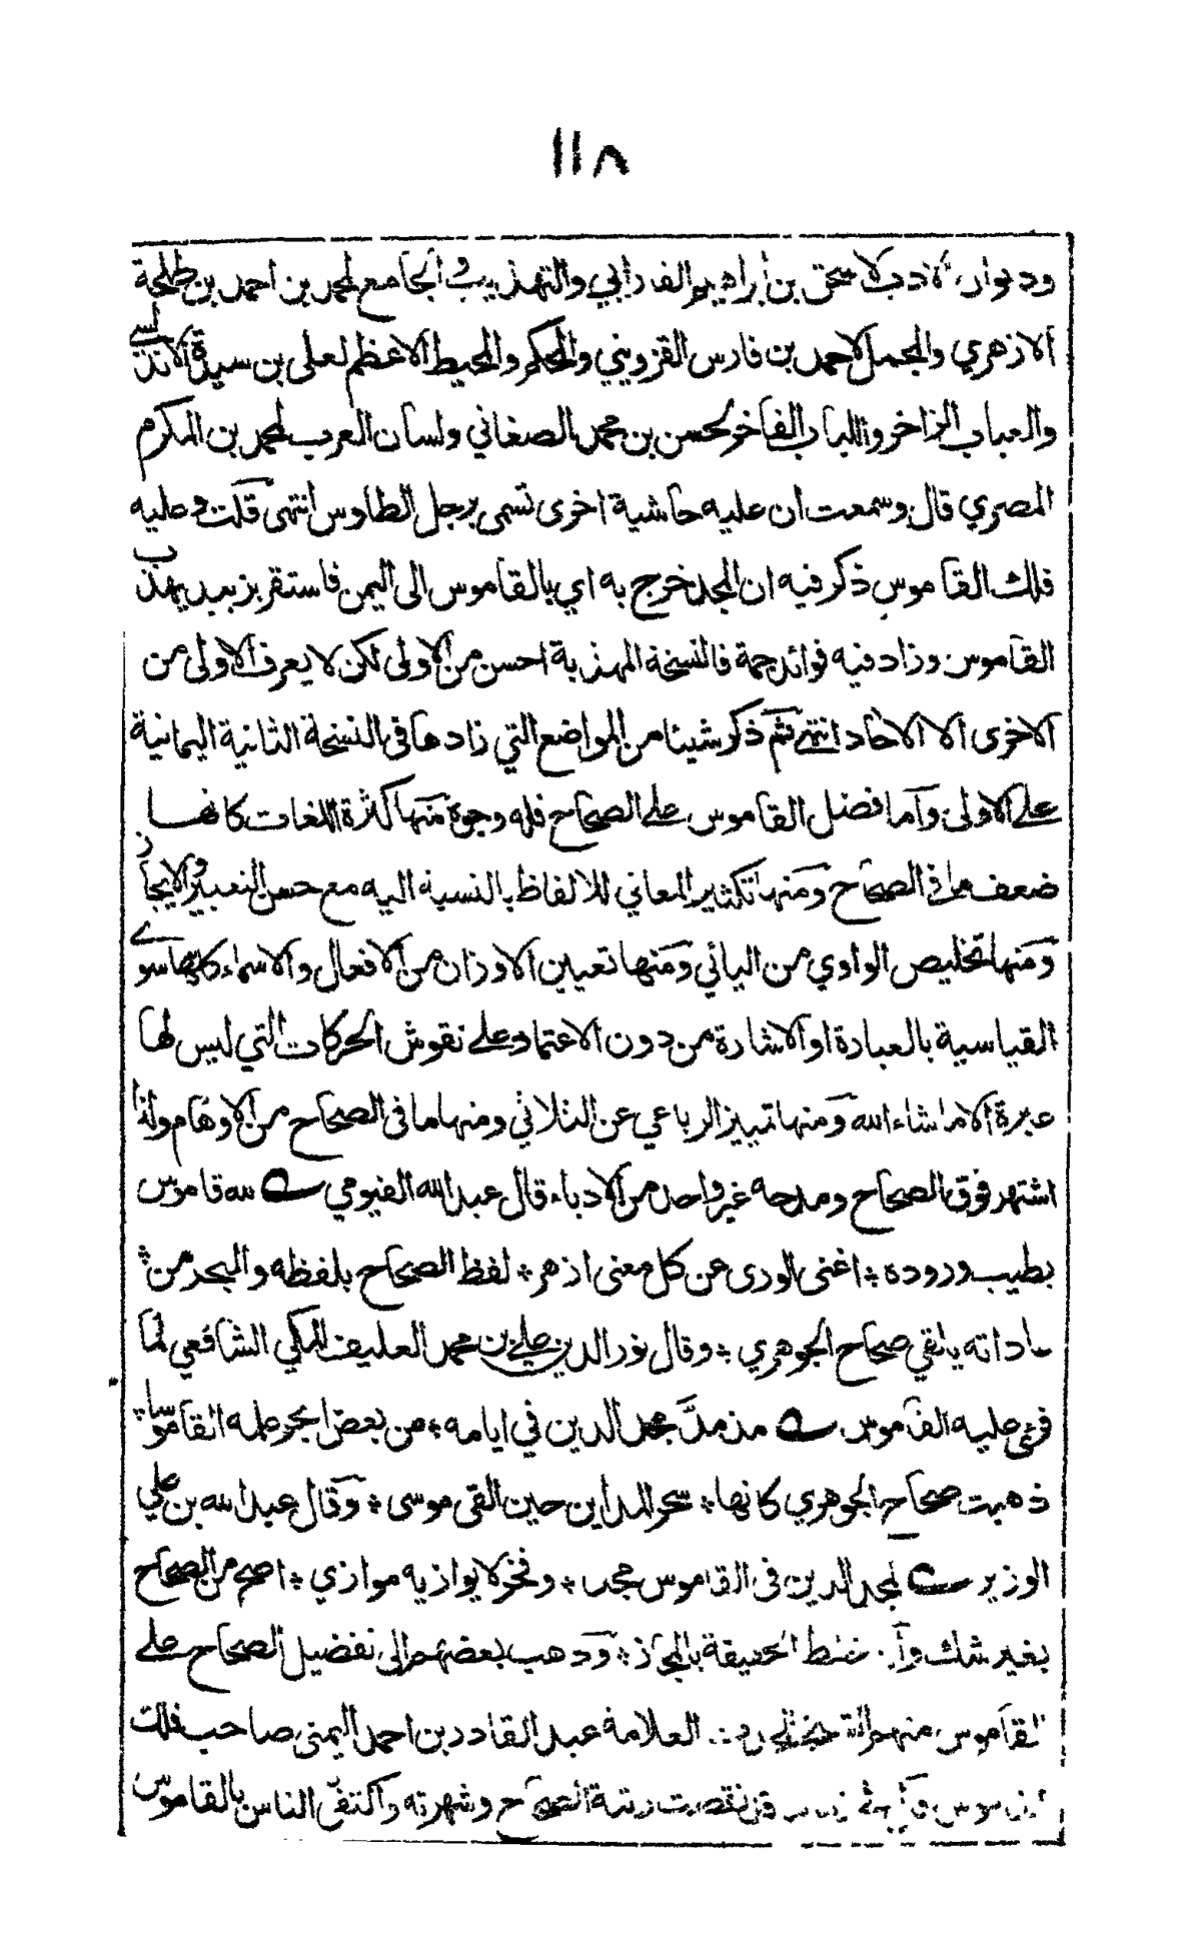 ١١٨
وديوان الادب لاسحق بن ابراهيم الفارابي والتهذيب والجامع لمحمد بن احمد بن طلحة
الازهري والمجمل لاحمد بن فارس القزويني والمحكم والمحيط الاعظم لعلي بن سيدة الاندلسي
والعباب الزاخر واللباب الفاخر لحسن بن محمد الصغاني ولسان العرب لمحمد بن المكرم
المصري قال وسمعت ان عليه حاشية اخرى تسمى برجل الطاوس انتهى قلت وعليه
فلك القاموس ذكر فيه ان المجد خرج به اي بالقاموس الى اليمن فاستقر بزبيد يهذب
القاموس وزاد فيه فوائد جمة فالنسخة المهذبة احسن من الاولى لكن لا يعرف الاولى من
الاخرى الا الاحاد انتهى ثم ذكر شيئا من المواضع التي زادها في النسخة الثانية اليمانية
على الاولى وآما فضل القاموس على الصحاح فله وجوه منها كثرة اللغات كانها
ضعف مافي الصحاح ومنها تكثير المعاني للالفاظ بالنسبة اليه مع حسن التعبير والايجاز
ومنها تخليص الواوي من اليائي ومنها تعيين الاوزان من الافعال والاسماء كلها سوى
القياسية بالعبارة او الاشارة من دون الاعتماد على نقوش الحركات التي ليس لها
عبرة الا ما شاء الله ومنها تمييز الرباعي عن الثلاثي ومنها ما في الصحاح من الاوهام ولذا
اشتهر فوق الصحاح ومدحه غير واحد من الادباء قال عبد الله الفيومي لله قاموس
بطيب وروده * اغنى الورى عن كل معنى ازهر * لفظ الصحاح بلفظه والبحر من *
عاداته يلقي صحاح الجوهري * وقال نور الدين علي بن محمد العليف المكي الشافعي لما
قرئ عليه القاموس مذ مدّ مجد الدين في ايامه * من بعض ابحر علمه القاموسا *
ذهبت صحاح الجوهري كانها * سحر المداين حين القى موسى * وقال عبد الله بن علي
الوزير لمجد الدين في القاموس مجد * وفخر لا يوازيه موازي * اصح من الصحاح
بغير شك وان خلط الحقيقة بالمجاز * وذهب بعضهم الى تفضيل الصحاح على
القاموس منهم العلامة عبد القادر بن احمد اليمني صاحب فلك
القاموس قد نقصت رتبة الصحاح وشهرته واكتفى الناس بالقاموس